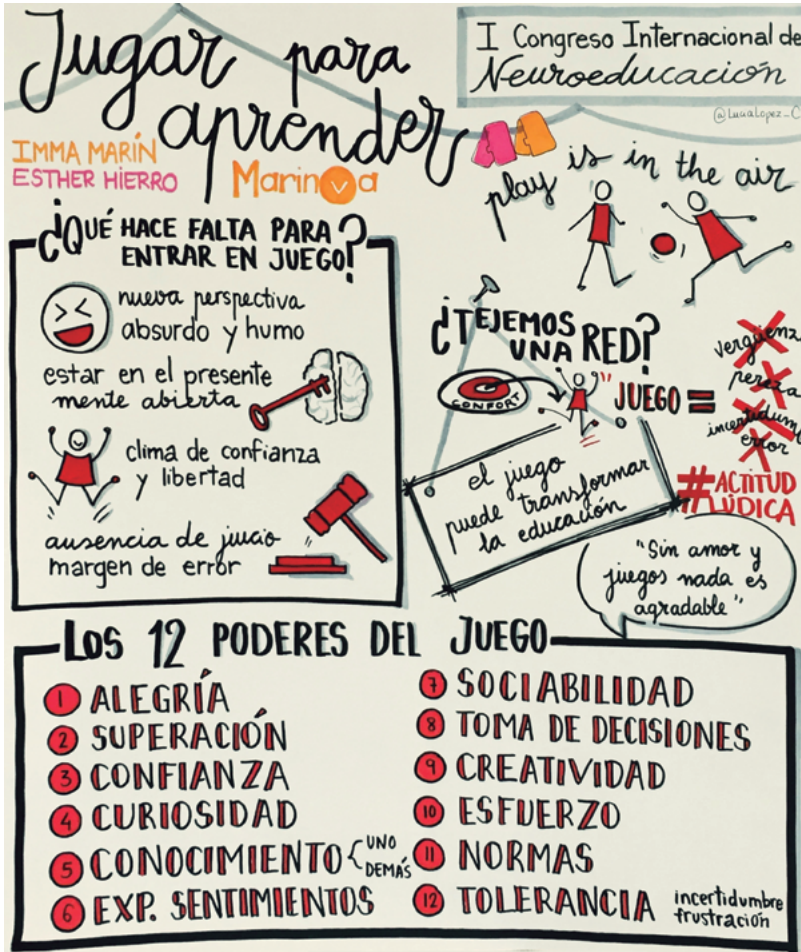 Jugar para
aprender
I Congreso Internacional de
Neuroeducación
IMMA MARÍN
ESTHER HIERRO
Marinva
play is in the air
¿QUÉ HACE FALTA PARA
ENTRAR EN JUEGO?
nueva perspectiva
absurdo y humo
estar en el presente
mente abierta
clima de confianza
y libertad
ausencia de juicio
margen de error
¿TEJEMOS
UNA RED?
CONFORT
"JUEGO =
vergüenz
pereza
incertidumb
error
#ACTITUD
LÚDICA
el juego
puede transformar
la educación
"Sin amor y
juegos nada es
agradable"
LOS 12 PODERES DEL JUEGO
1 ALEGRÍA
2 SUPERACIÓN
3 CONFIANZA
4 CURIOSIDAD
5 CONOCIMIENTO { UNO
DEMÁS
6 EXP. SENTIMIENTOS
7 SOCIABILIDAD
8 TOMA DE DECISIONES
9 CREATIVIDAD
10 ESFUERZO
11 NORMAS
12 TOLERANCIA incertidumbre
frustración